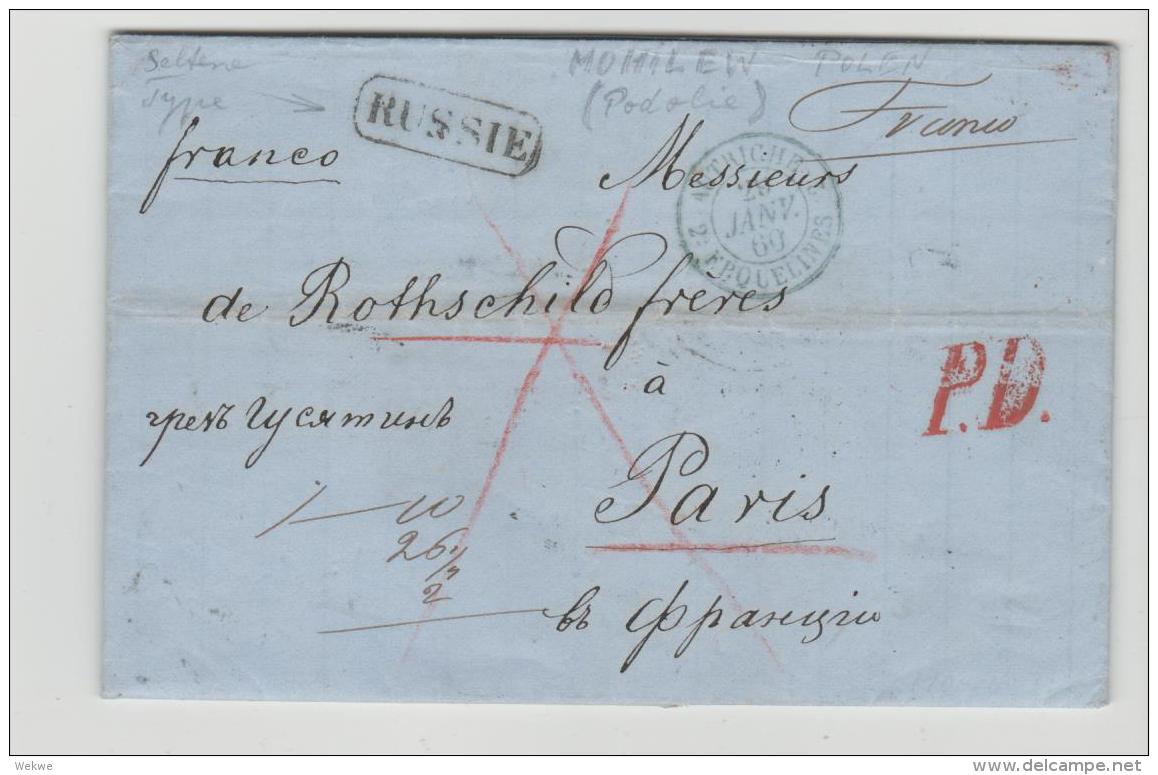 Seltene
Type
MOHILEW POLEN
(Podolie)
RUSSIE
Franco
franco
Messieurs
AUTRICHE
JANV.
60
2 ERQUELINES 2
de Rothschild frères
à
P.D.
чрезъ Гусятинъ
Paris
10
26 1/2
2
въ Францію
Wekwe
delcampe.net